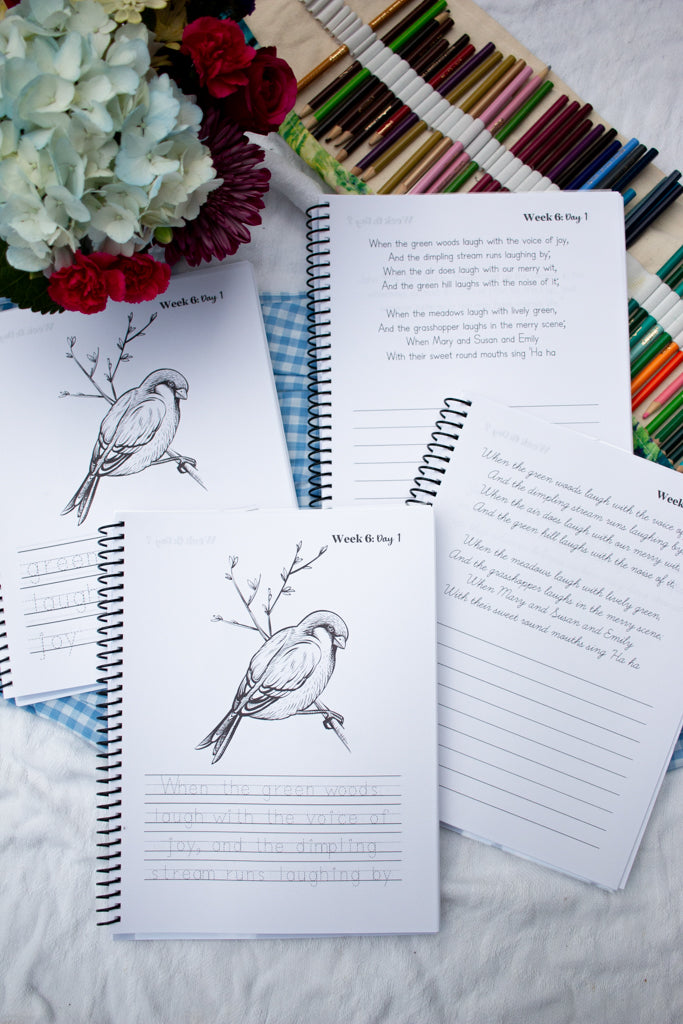 Week 6: Day 1
When the green woods laugh with the voice of joy,
And the dimpling stream runs laughing by;
When the air does laugh with our merry wit,
And the green hill laughs with the noise of it;
When the meadows laugh with lively green,
And the grasshopper laughs in the merry scene;
When Mary and Susan and Emily
With their sweet round mouths sing 'Ha ha
Week 6: Day 1
green
laugh
joy
Week
When the green woods laugh with the voice of
And the dimpling stream runs laughing by
When the air does laugh with our merry wit,
And the green hill laughs with the noise of it;
When the meadows laugh with lively green,
And the grasshopper laughs in the merry scene,
When Mary and Susan and Emily
With their sweet round mouths sing Ha ha
Week 6: Day 1
When the green woods
laugh with the voice of
joy, and the dimpling
stream runs laughing by